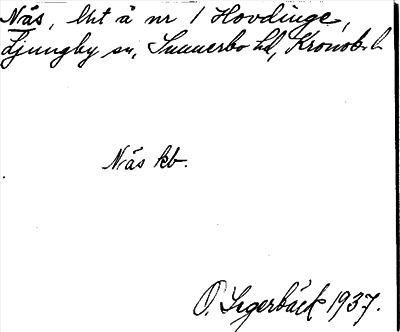 Näs, lht å nr 1 Hovdinge,
Ljungby sn, Sunnerbo hd, Kronob. l.
Näs kb.
O. Segerbäck 1937.